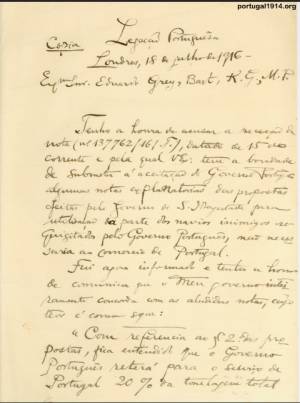 portugal1914.org
Copia Legação Portuguesa
Londres, 18 de julho de 1916 -
Exmo Snr. Eduard Grey, Bart, K. G., M. P.
Tenho a honra de acusar a recepção da
nota (nº 137762/16/ ), datada de 15 do
corrente e pela qual V. Ex. tem a bondade
de submeter á aceitação do Governo
algumas notas explanatorias das propostas
feitas pelo Governo de S. Magestade para
utilisar parte dos navios inimigos re-
quisitados pelo Governo Português, não neces-
saria ao comercio de Portugal.
Fui agora informado e tenho a honra
de comunicar que o meu governo intei-
ramente concorda com as aludidas notas, cujo
teor é como segue:
" Com referencia ao § 2 das pro-
postas, fica entendido que o Governo
Português reterá para o serviço de
Portugal 20% da tonelagem total